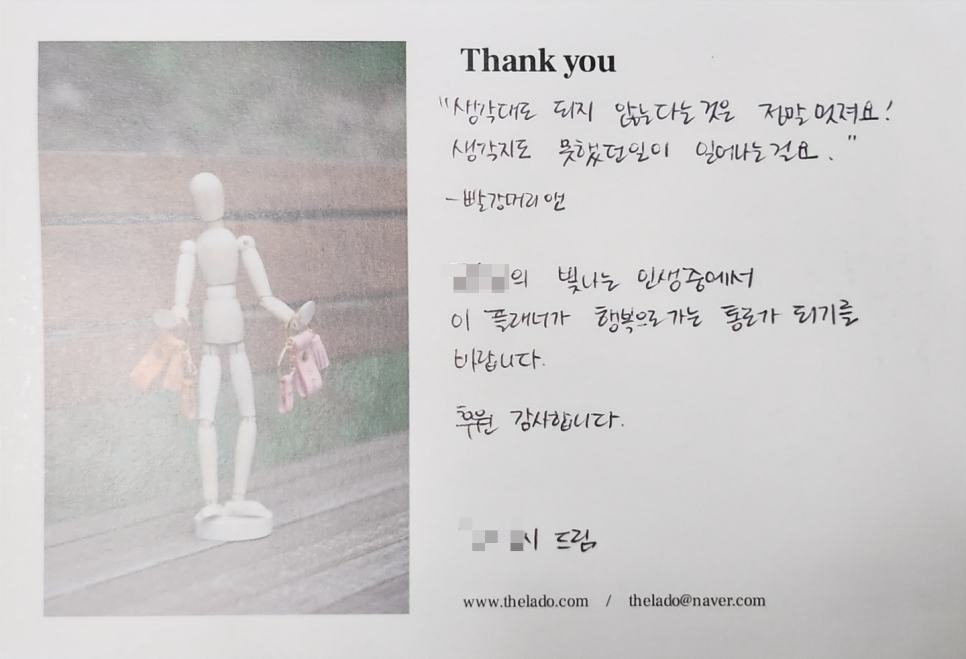 Thank you
"생각대로 되지 않는다는것은 정말 멋져요!
생각지도 못했던일이 일어나는걸요."
-빨강머리앤
의 빛나는 인생중에서
이 플래너가 행복으로가는 통로가 되기를
바랍니다.
후원 감사합니다.
드림
www.thelado.com / thelado@naver.com